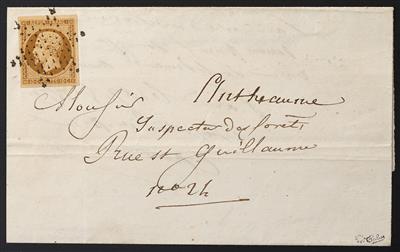 Monsieur Antheaume
Inspecteur des forêts
Rue st Guillaume
no 24